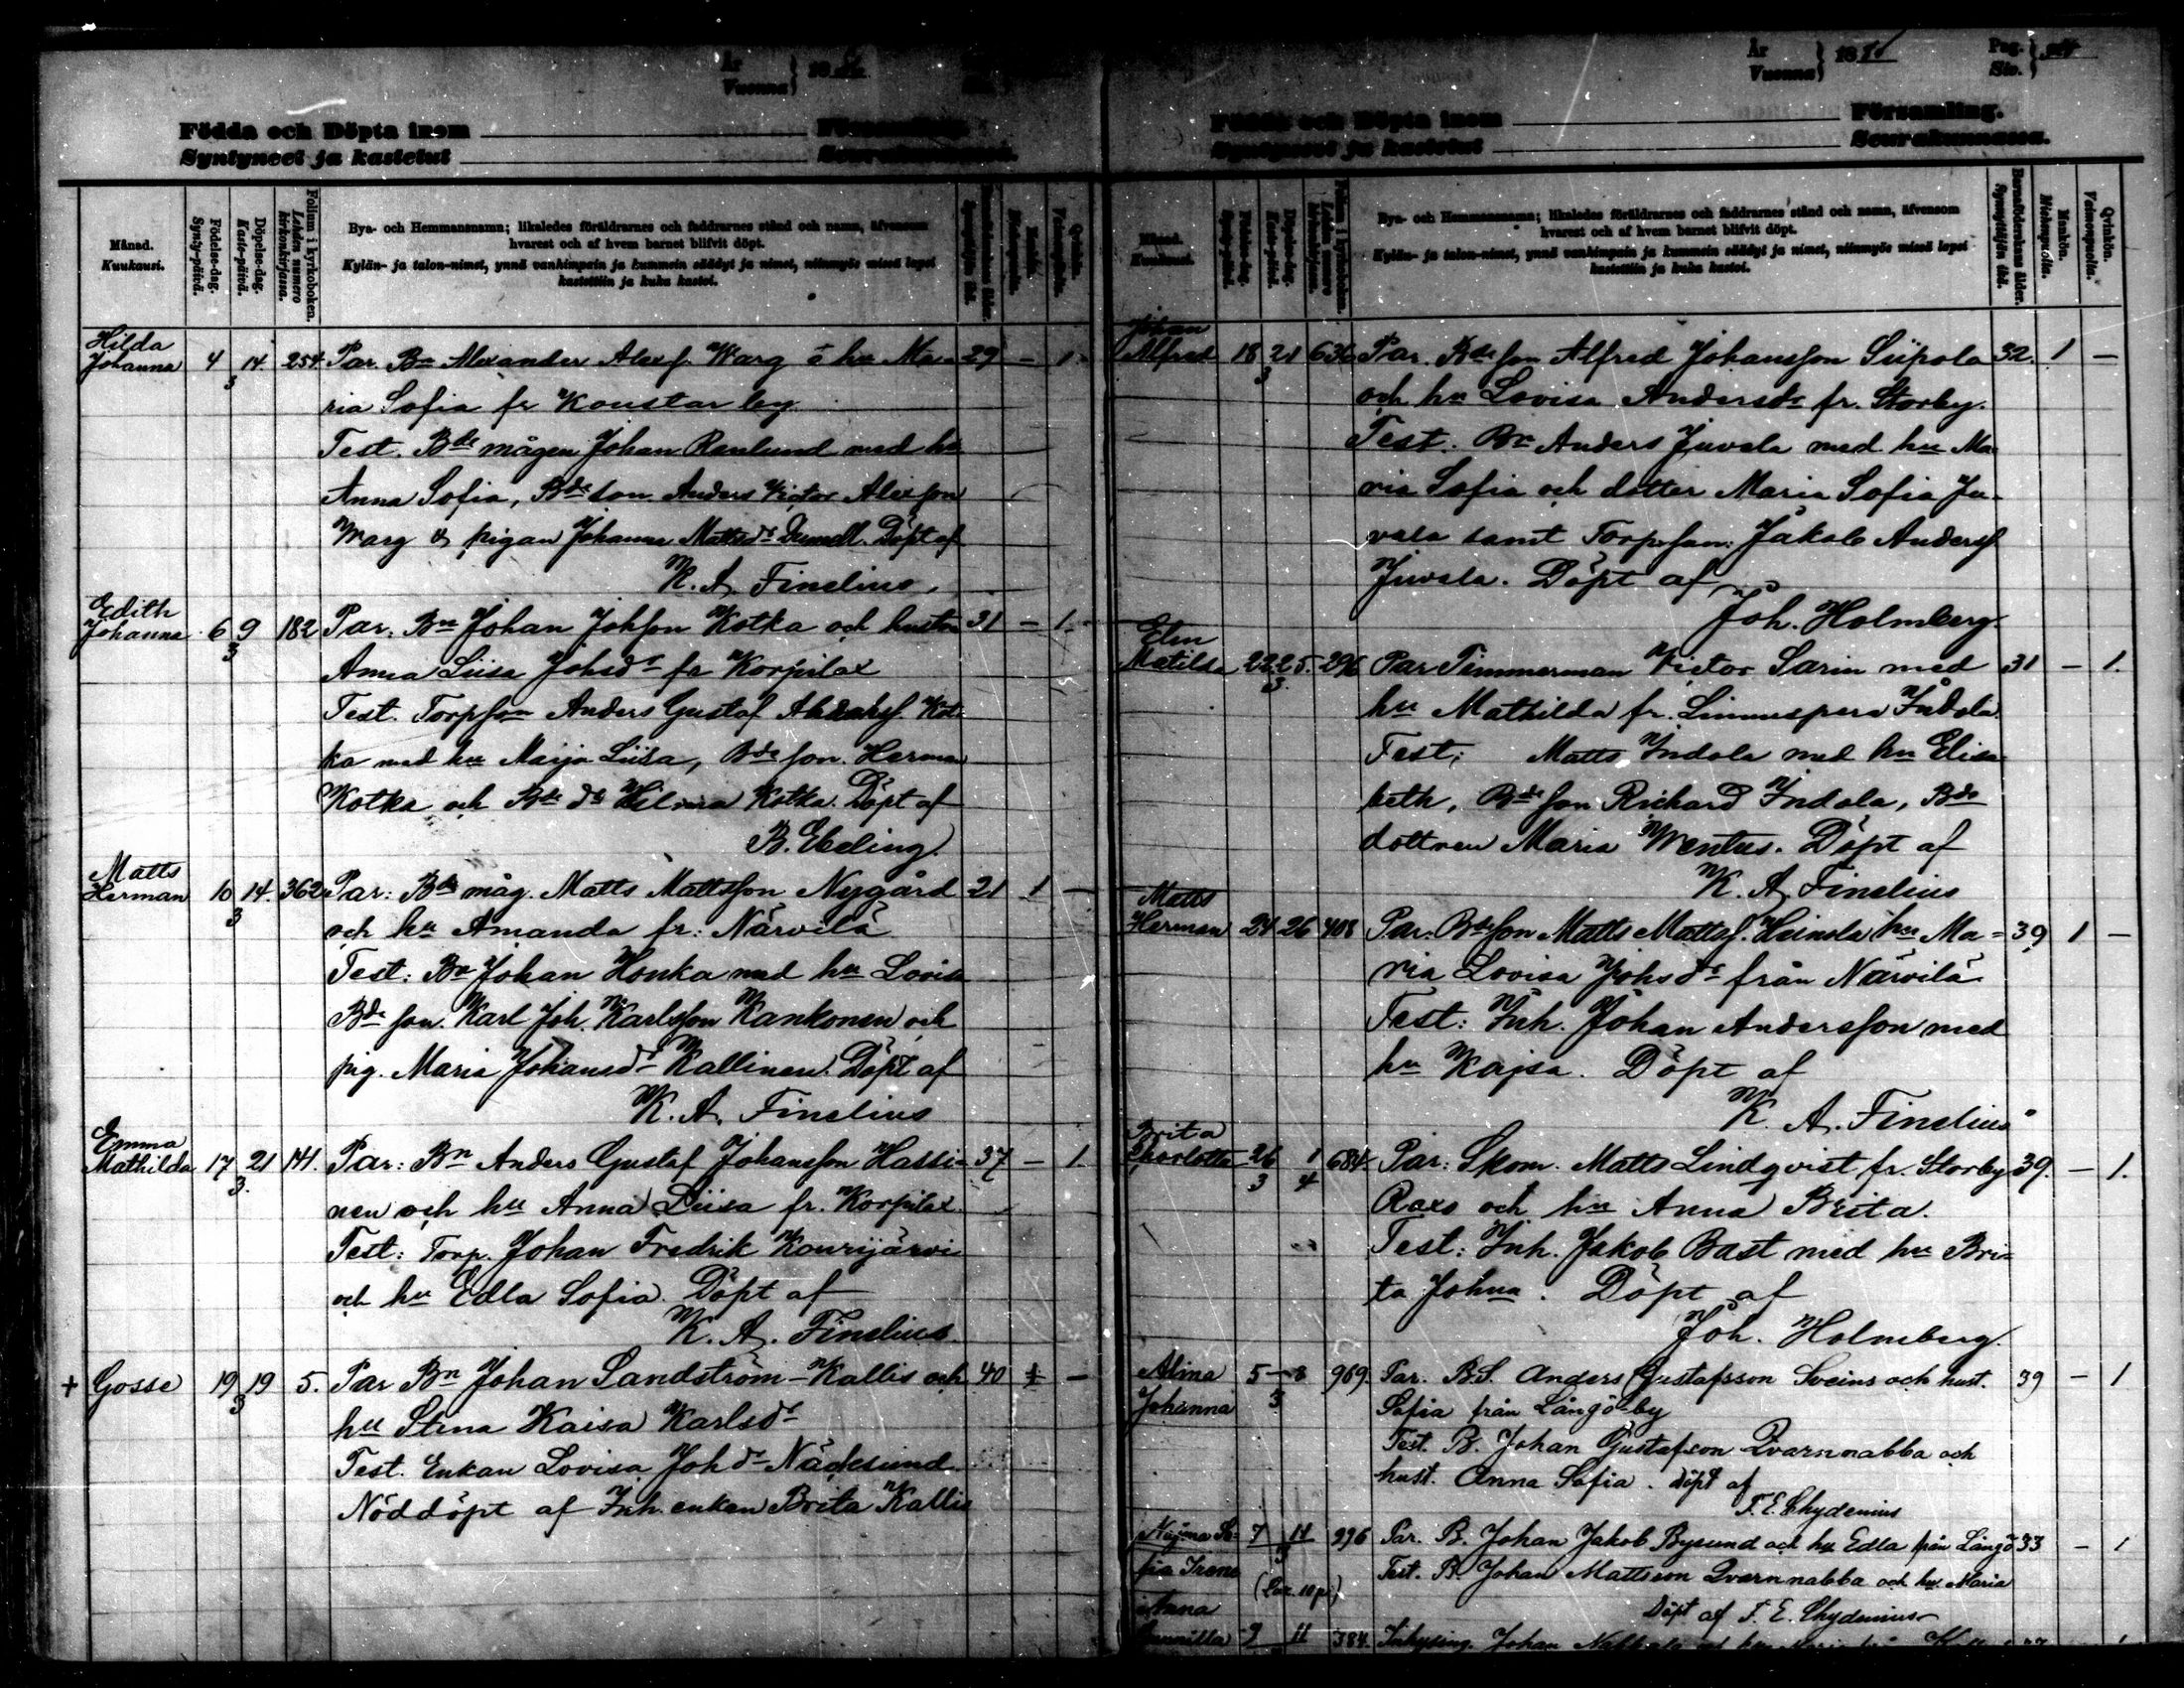 År
Vuonna } 18
Födda och Döpta inom Församling.
Syntyneet ja kastetut Seurakunnassa.
Månad.
Kuukausi.
Födelse-dag.
Synty-päivä.
Döpelse-dag.
Kaste-päivä.
Folium i kyrkoboken.
Lehden numero kirkonkirjassa.
Bya- och Hemmansnamn; likaledes föräldrarnes och faddrarnes stånd och namn, äfvensom
hvarest och af hvem barnet blifvit döpt.
Kylän- ja talon-nimet, ynnä vanhimpain ja kummein säädyt ja nimet, niinmyös missä lapsi
kastettiin ja kuka kastoi.
Hilda
Johanna 4 14. 254. Par. Bn Alexander Alexs. Warg o hu Ma- 29 – 1.
3
ria Sofia fr Koustar by
Test. Bde mågen Johan Renlund med hu
Anna Sofia, Bde son Anders Victor Alexson
Warg & pigan Johanna Mattsdr Döpt af
K. A. Finelius.
Edith
Johanna 6 9 182 Par: Bn Johan Johsson Kotka och hustru 31 – 1.
3
Anna Liisa Johsdr fr Korpilax
Test. Torpson Anders Gustaf Kot-
ka med hu Maija Liisa, Bde son Herman
Kotka och Bde dr Hilma Kotka. Döpt af
B. Ebeling.
Matts
Herman 10 14. 362 Par: Bde måg. Matts Mattsson Nygård 21 1 –
3
och hu Amanda fr. Närvilä
Test: Bn Johan Honka med hu Lovisa
Bde son. Karl Joh. Karlsson Kankonen och
pig. Maria Johansdr Kallinen. Döpt af
K. A. Finelius
Emma
Mathilda 17 21 141. Par: Bn Anders Gustaf Johansson Hassi- 37 – 1.
3.
nen och hu Anna Liisa fr. Korpilax.
Test: Torp. Johan Fredrik Kourijärvi
och hu Edla Sofia. Döpt af
K. A. Finelius.
+ Gosse 19 19 5. Par Bn Johan Sandström-Kallis och 40 1 –
3
hu Stina Kaisa Karlsdr
Test. Enkan Lovisa Johdr Näcksund
Nöddöpt af Inh. enkan Brita Kallis
År
Vuonna } 18
Pag.
Siv. }
Födda och Döpta inom Församling.
Syntyneet ja kastetut Seurakunnassa.
Månad.
Kuukausi.
Födelse-dag.
Synty-päivä.
Döpelse-dag.
Kaste-päivä.
Folium i kyrkoboken.
Lehden numero kirkonkirjassa.
Bya- och Hemmansnamn; likaledes föräldrarnes och faddrarnes stånd och namn, äfvensom
hvarest och af hvem barnet blifvit döpt.
Kylän- ja talon-nimet, ynnä vanhimpain ja kummein säädyt ja nimet, niinmyös missä lapsi
kastettiin ja kuka kastoi.
Barnaföderskans ålder.
Synnyttäjän ikä.
Mankön.
Miehenpuolta.
Qvinkön.
Vaimonpuolta.
Johan
Alfred 18 21 636 Par. Bde son Alfred Johansson Siipola 32. 1 –
3
och hu Lovisa Andersdr fr. Storby.
Test. Bn Anders Juvala med hu Ma-
ria Sofia och dotter Maria Sofia Ju-
vala samt Torpson: Jakob Anderss
Juvala. Döpt af
Joh. Holmberg.
Elin
Matilda 22 25. 296 Par Timmerman Victor Sarin med 31 – 1.
3.
hu Mathilda fr. Linnuspera Indola.
Test: Matts Indola med hu Elisa-
beth, Bde son Richard Indola, Bde
dottren Maria Wentus. Döpt af
K. A. Finelius
Matts
Herman 24 26 408 Par. Bde son Matts Mattss. Heinola hu Ma- 39 1 –
ria Lovisa Johsdr från Närvilä
Test: Inh. Johan Andersson med
hu Kajsa. Döpt af
K. A. Finelius
Brita
Charlotta 26 1 684 Par: Skom. Matts Lindqvist fr. Storby 39. – 1.
3 4
och hu Anna Brita.
Test: Inh. Jakob Bast med hu Bri-
ta Johna. Döpt af
Joh. Holmberg.
Alina 5 – 8 969. Par. B.S. Anders Gustafsson Sveins och hust. 39 – 1
Johanna 3
Sofia från Långö by
Test. B. Johan Gustafsson Qvarnnabba och
hust. Anna Sofia. Döpt af
F. E. Chydenius
So- 7 11 996 Par. B. Johan Jakob Bysund och hu Edla från Långö 33 – 1
fia Irene
Test. B. Johan Mattsson Qvarnnabba och hu. Maria
Döpt af F. E. Chydenius
Anna
9 11 384. Inhysing. Johan